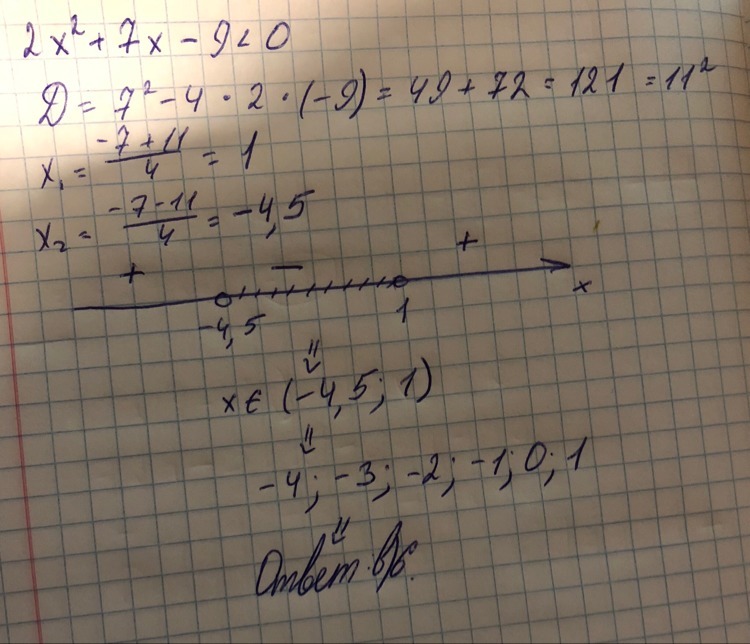 2x² + 7x - 9 < 0
D = 7² - 4 · 2 · (-9) = 49 + 72 = 121 = 11²
x₁ = (-7 + 11)/4 = 1
x₂ = (-7 - 11)/4 = -4,5
+ − +
-4,5 1 x
⇓
x ∈ (-4,5; 1)
⇓
-4; -3; -2; -1; 0; 1
⇓
Ответ